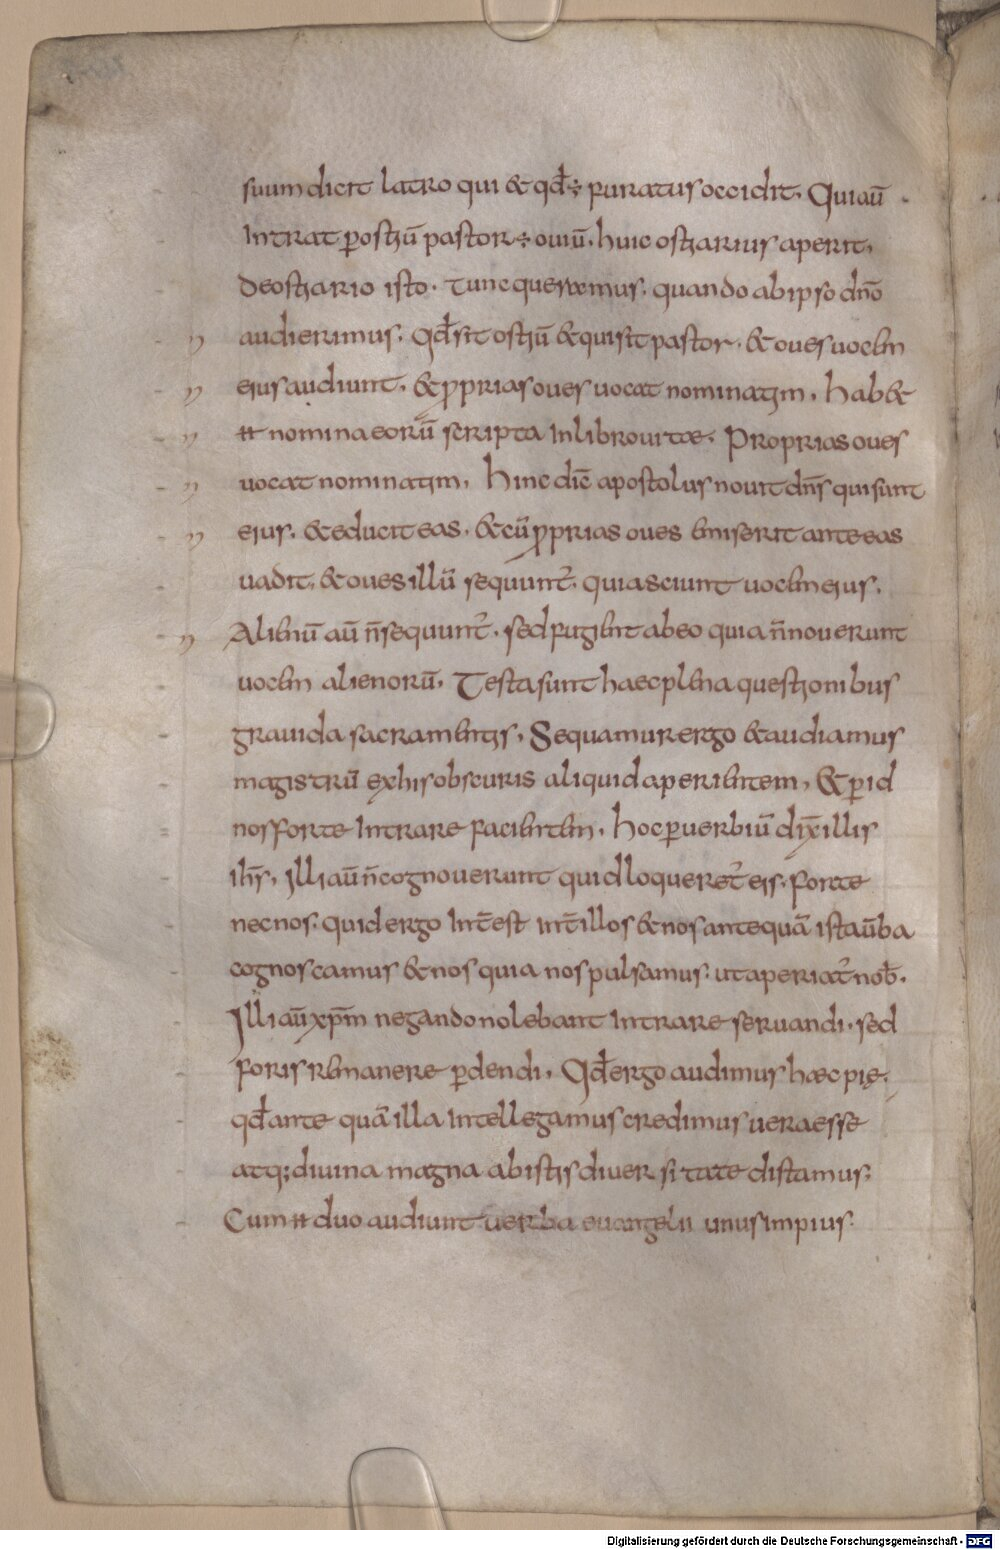 suum dicit latro qui & qđ ÷ furatus occidit. Qui aū
Intrat ꝑ ostiū pastor ÷ ouiū. huic ostiarius aperit.
De ostiario isto. Tunc queremus. quando ab ipso dn̄o
audierimus. qđ sit ostiū & quis sit pastor. & oues uocem
eius audiunt. & ꝓprias oues uocat nominatim. hab&
ᚔ nomina eorū scripta In libro uitae. Proprias oues
uocat nominatim. hinc dic̄ apostolus nouit dn̄s qui sunt
eius. & educit eas. & cū ꝓprias oues emiserit ante eas
uadit. & oues illū sequunt̄. quia sciunt uocem eius.
Alienū aū n̄ sequunt̄. sed fugient ab eo quia n̄ nouerunt
uocem alienorū. Tecta sunt haec plena questionibus
grauida sacramentis. Sequamur ergo & audiamus
magistrū ex his obscuris aliquid aperientem. & ꝑ id
nos forte Intrare facientem. hoc ꝓuerbiū dix̄ illis
ih̄s. Illi aū n̄ cognouerunt quid loqueret̄ eis. forte
nec nos. quid ergo Int̄est int̄ illos & nos antequā ista ūba
cognoscamus & nos quia nos pulsamus. ut aperiat̄ nob̄.
Illi aū xp̄m negando nolebant Intrare seruandi. sed
foris remanere ꝑdendi. Qđ ergo audimus haec pię.
qđ ante quā illa Intellegamus credimus uera esse
atq; diuina magna ab istis diuersitate distamus;
Cum ᚔ duo audiunt uerba euangelii unus impius.
Digitalisierung gefördert durch die Deutsche Forschungsgemeinschaft - DFG